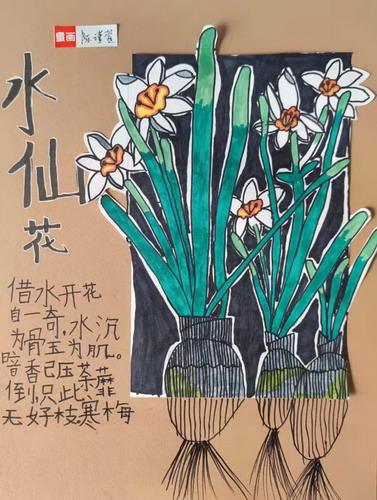 童画
水仙花
借水开花
自一奇,水沉
为骨玉为肌。
暗香已压荼蘼
倒,只此
无好枝寒梅